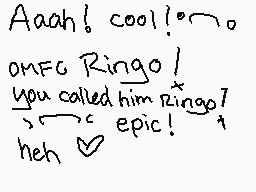 Aaah! cool!
OMFG Ringo!
you called him Ringo?
epic!
heh